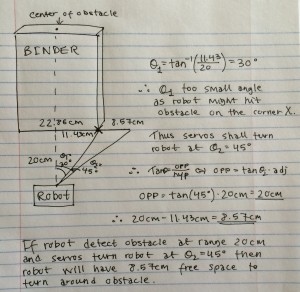 center of obstacle
BINDER
22.86cm
8.57cm
11.43cm
X
20cm
θ₁
30°
θ₂
45°
Robot
θ₁ = tan⁻¹(11.43/20) = 30°
∴ θ₁ too small angle
as robot might hit
obstacle on the corner X.
Thus servos shall turn
robot at θ₂ = 45°
∴ Tan opp/hyp or opp = tanθ₂·adj
opp = tan(45°)·20cm = 20cm
∴ 20cm - 11.43cm = 8.57cm
If robot detect obstacle at range 20cm
and servos turn robot at θ₂ = 45° then
robot will have 8.57cm free space to
turn around obstacle.